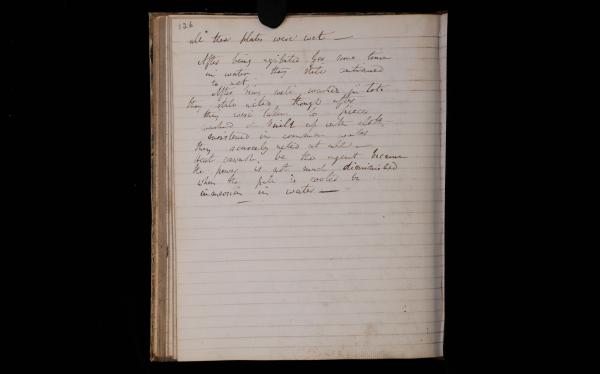 126
all these plates were wet —
After being agitated for some time
in water they still continued
to act.
After being well washed in toto
they still acted, though after
they were taken to pieces
washed & built up with cloth
moistened in common water
they scarcely acted at all —
Heat cannot be the agent because
the power is not much diminished
when the pile is cooled by
immersion in water —